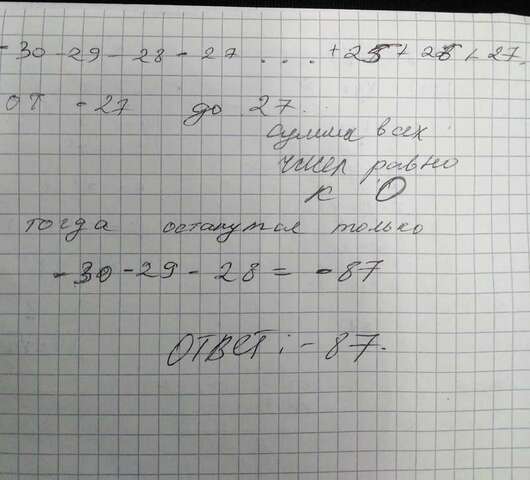 -30-29-28-27 . . . . +25+26+27.
от -27 до 27.
сумма всех
чисел равно
к 0
тогда останутся только
-30-29-28= -87
ОТВЕТ: -87.